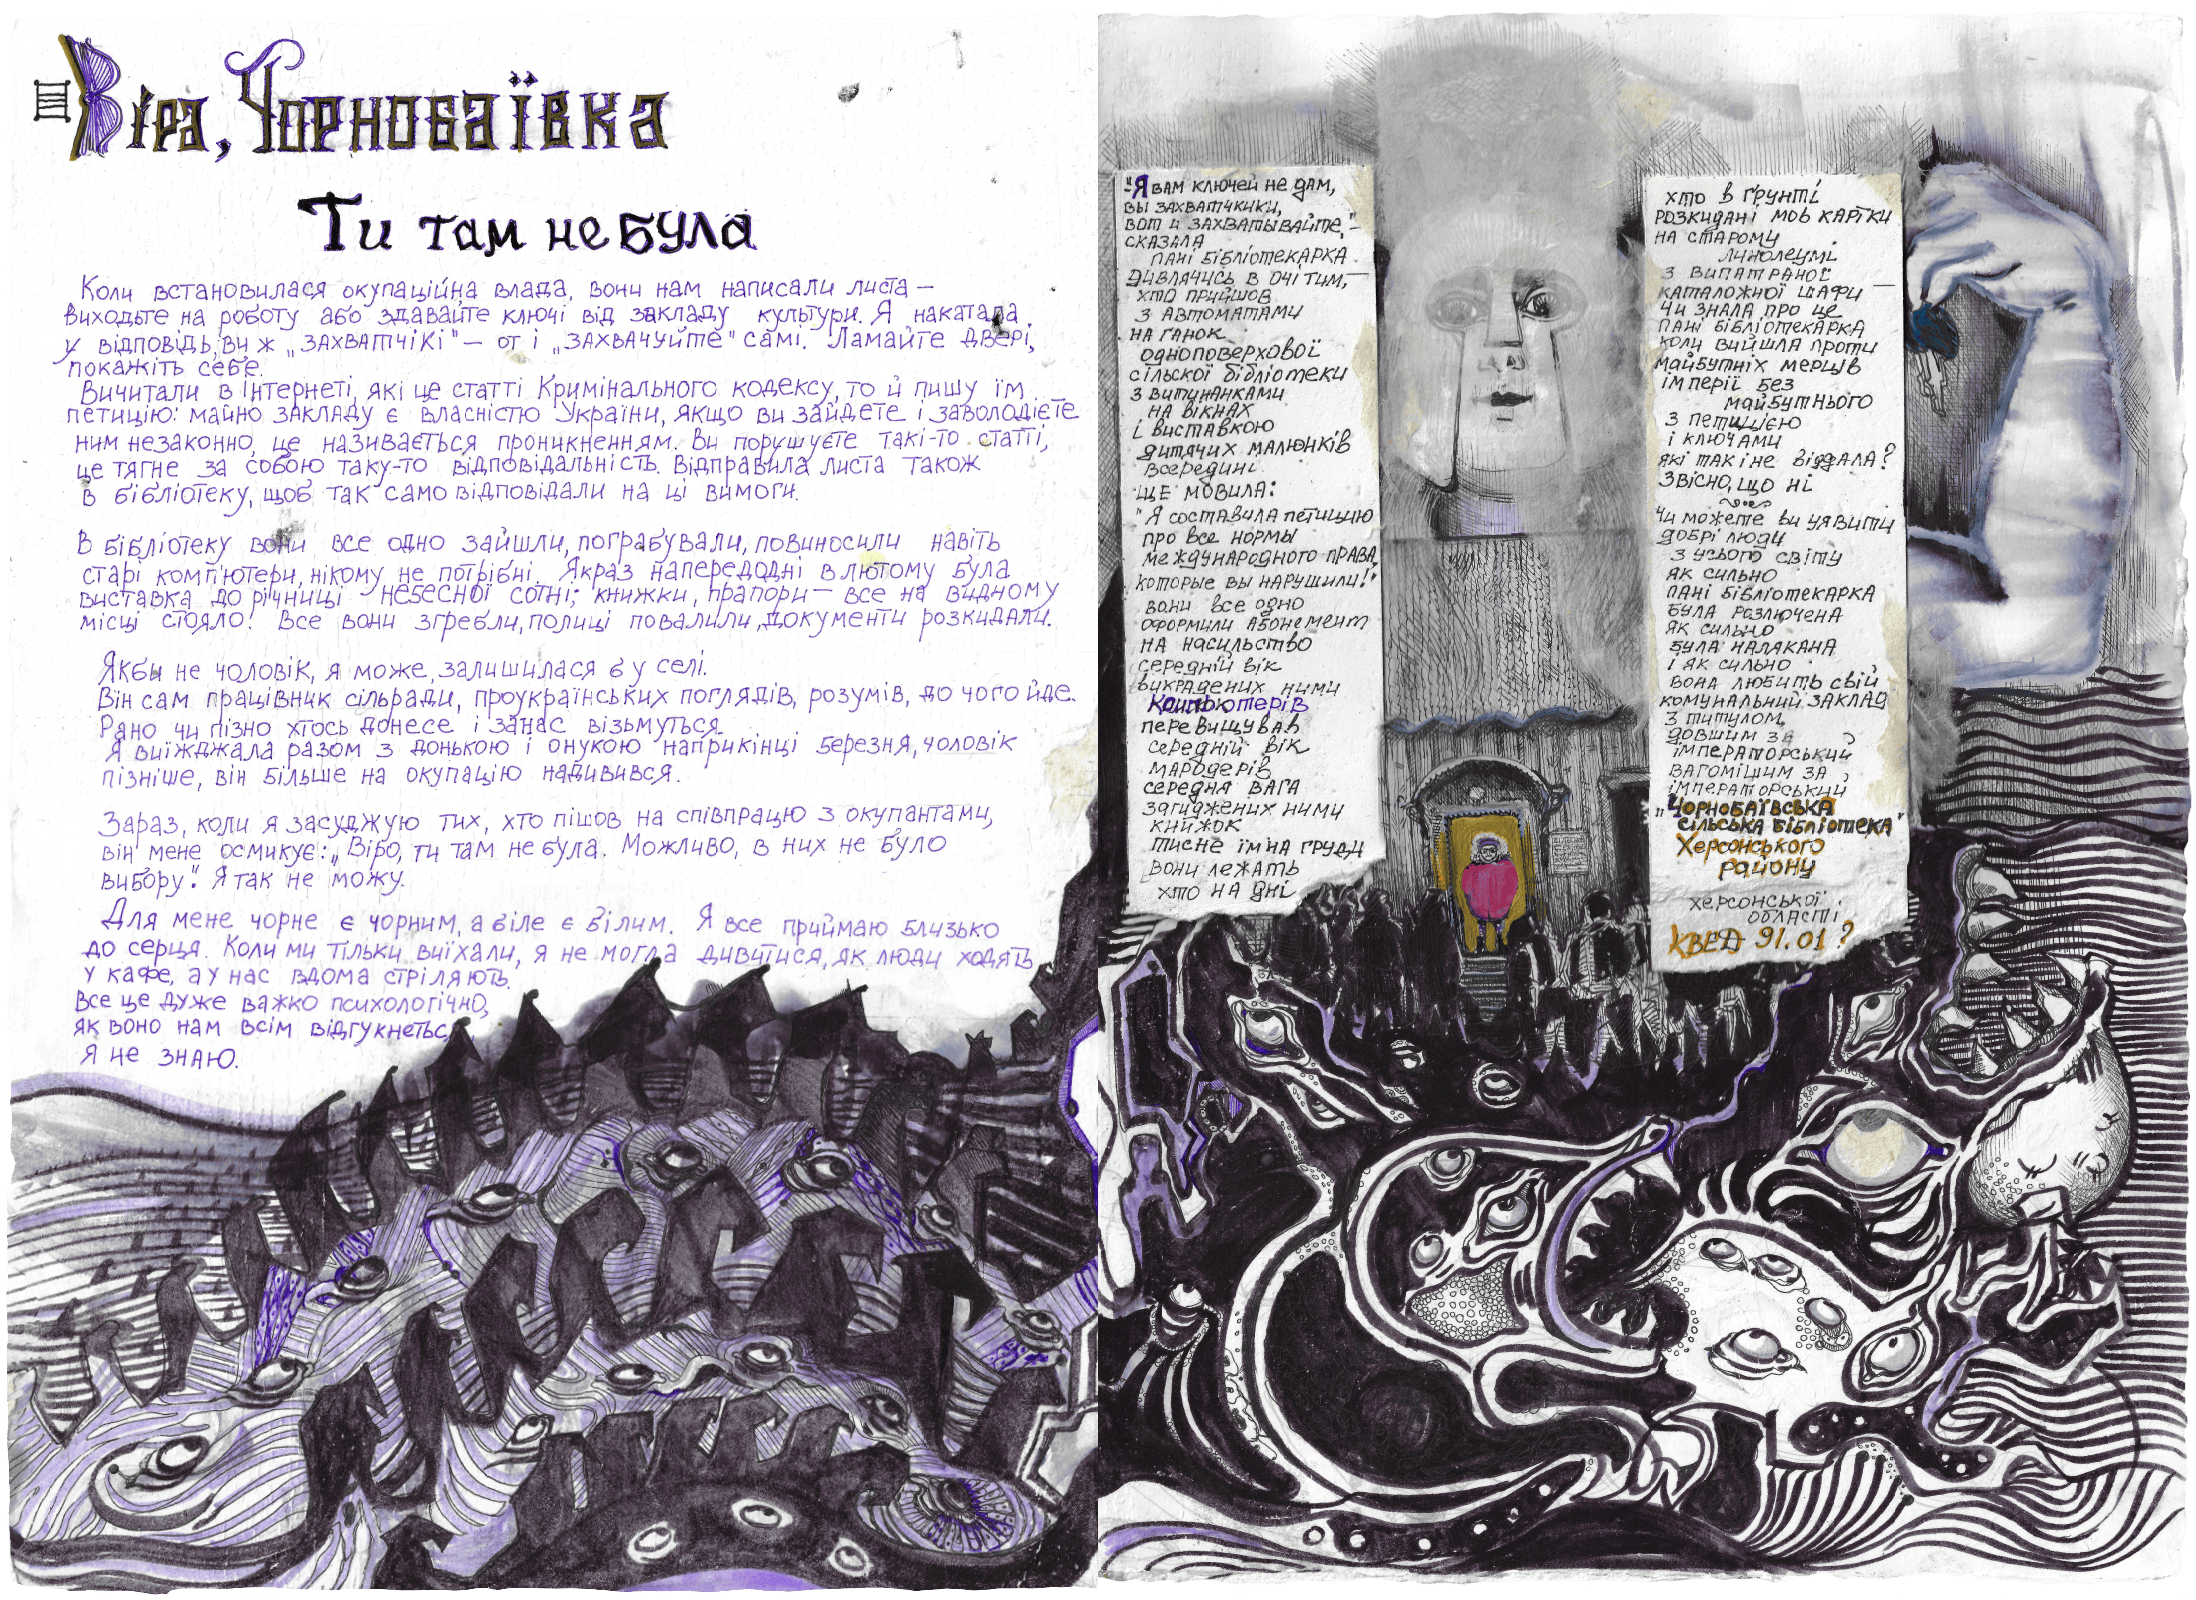 Віра, Чорнобаївка
Ти там не була
Коли встановилася окупаційна влада, вони нам написали листа –
виходьте на роботу або здавайте ключі від закладу культури. Я накатала
у відповідь, ви ж „ЗАХВАТЧІКІ" – от і „ЗАХВАЧУЙТЕ" самі. Ламайте двері,
покажіть себе.
Вичитали в Інтернеті, які це статті Кримінального кодексу, то й пишу їм
петицію: майно закладу є власністю України, якщо ви зайдете і заволодієте
ним незаконно, це називається проникненням. Ви порушуєте такі-то статті,
це тягне за собою таку-то відповідальність. Відправила листа також
в бібліотеку, щоб так само відповідали на ці вимоги.
В бібліотеку вони все одно зайшли, пограбували, повиносили навіть
старі комп'ютери, нікому не потрібні. Якраз напередодні в лютому була
виставка до річниці Небесної сотні; книжки, прапори – все на видному
місці стояло! Все вони згребли, полиці повалили, документи розкидали.
Якби не чоловік, я може, залишилася б у селі.
Він сам працівник сільради, проукраїнських поглядів, розумів, до чого йде.
Рано чи пізно хтось донесе і за нас візьмуться.
Я виїжджала разом з донькою і онукою наприкінці березня, чоловік
пізніше, він більше на окупацію надивився.
Зараз, коли я засуджую тих, хто пішов на співпрацю з окупантами,
він мене осмикує: „Віро, ти там не була. Можливо, в них не було
вибору". Я так не можу.
Для мене чорне є чорним, а біле є білим. Я все приймаю близько
до серця. Коли ми тільки виїхали, я не могла дивитися, як люди ходять
у кафе, а у нас вдома стріляють.
Все це дуже важко психологічно,
як воно нам всім відгукнеться,
я не знаю.
"Я вам ключей не дам,
вы захватчики,
вот и захватывайте," –
сказала
пані бібліотекарка
дивлячись в очі тим, –
хто прийшов
з автоматами
на ґанок
одноповерхової
сільскої бібліотеки
з витинанками
на вікнах
і виставкою
дитячих малюнків
всередині
ще мовила:
"Я составила петицию
про все нормы
международного права,
которые вы нарушили!"
вони все одно
оформили абонемент
на насильство
середній вік
викрадених ними
комп'ютерів
перевищував
середній вік
мародерів
середня вага
згиджених ними
книжок
тисне їм на груди
вони лежать
хто на дні
хто в ґрунті
розкидані мов картки
на старому
лінолеумі
з випатраної
каталожної шафи –
чи знала про це
пані бібліотекарка
коли вийшла проти
майбутніх мерців
імперії без
майбутнього
з петицією
і ключами
які так і не віддала?
звісно, що ні
чи можете ви уявити
добрі люди
з усього світу
як сильно
пані бібліотекарка
була розлючена
як сильно
була налякана
і як сильно
вона любить свій
комунальний заклад
з титулом
довшим за
імператорський
вагомішим за
імператорський
"Чорнобаївська
сільська бібліотека"
Херсонського
району
Херсонської
області
КВЕД 91.01?